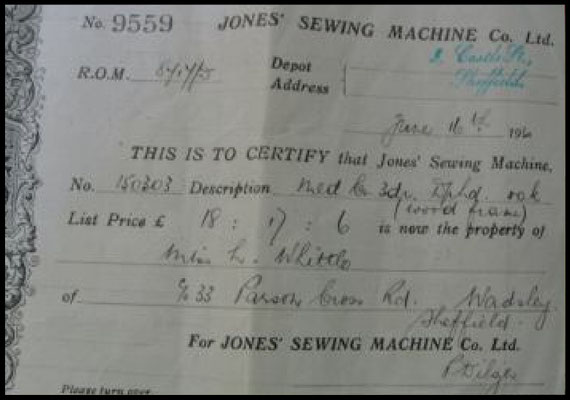 No. 9559 JONES' SEWING MACHINE Co. Ltd.
R.O.M. Depot Address 2, Castle St., Sheffield.
June 16th 192
THIS IS TO CERTIFY that Jones' Sewing Machine,
No. 150303 Description Med C 3dr. oak
(wood frame)
List Price £ 18 : 17 : 6 is now the property of
Miss L. Whittle
of % 33 Parson Cross Rd. Wadsley
Sheffield.
For JONES' SEWING MACHINE Co. Ltd.
Please turn over